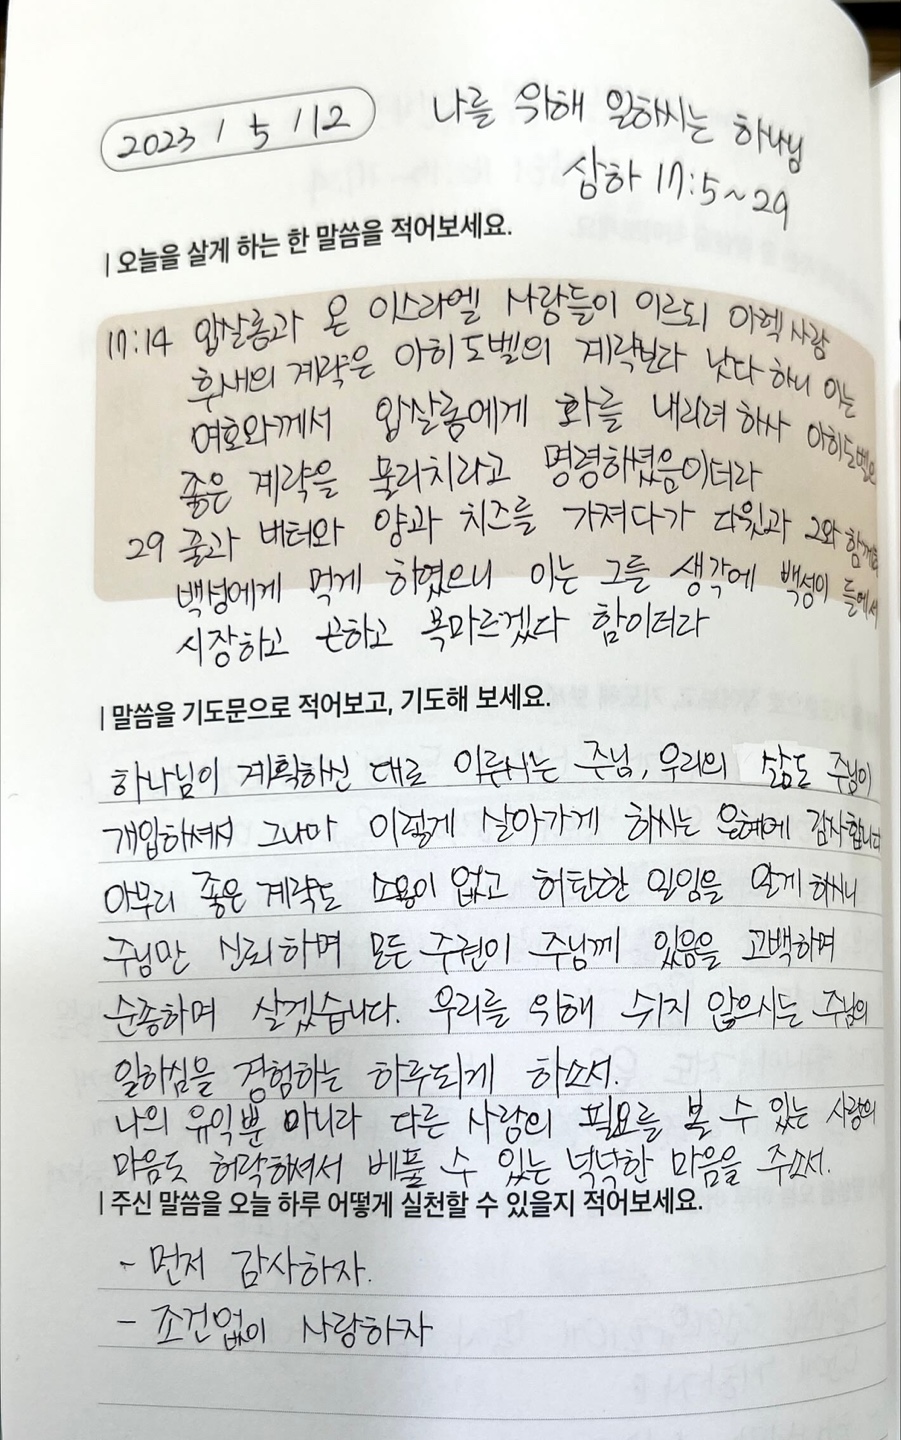 2023 / 5 / 12
나를 위해 일하시는 하나님
삼하 17:5~29
| 오늘을 살게 하는 한 말씀을 적어보세요.
17:14 압살롬과 온 이스라엘 사람들이 이르되 아렉 사람
후새의 계략은 아히도벨의 계략보다 낫다 하니 이는
여호와께서 압살롬에게 화를 내리려 하사 아히도벨의
좋은 계략을 물리치라고 명령하셨음이더라
29 꿀과 버터와 양과 치즈를 가져다가 다윗과 그와 함께한
백성에게 먹게 하였으니 이는 그들 생각에 백성이 들에서
시장하고 곤하고 목마르겠다 함이더라
| 말씀을 기도문으로 적어보고, 기도해 보세요.
하나님이 계획하신 대로 이루시는 주님, 우리의 삶도 주님이
개입하셔서 그나마 이렇게 살아가게 하시는 은혜에 감사합니다
아무리 좋은 계략도 소용이 없고 허탄한 일임을 알게 하시니
주님만 신뢰하며 모든 주권이 주님께 있음을 고백하며
순종하며 살겠습니다. 우리를 위해 쉬지 않으시는 주님의
일하심을 경험하는 하루되게 하소서.
나의 유익뿐 아니라 다른 사람의 필요를 볼 수 있는 사랑의
마음도 허락하셔서 베풀 수 있는 넉넉한 마음을 주소서.
| 주신 말씀을 오늘 하루 어떻게 실천할 수 있을지 적어보세요.
- 먼저 감사하자.
- 조건없이 사랑하자